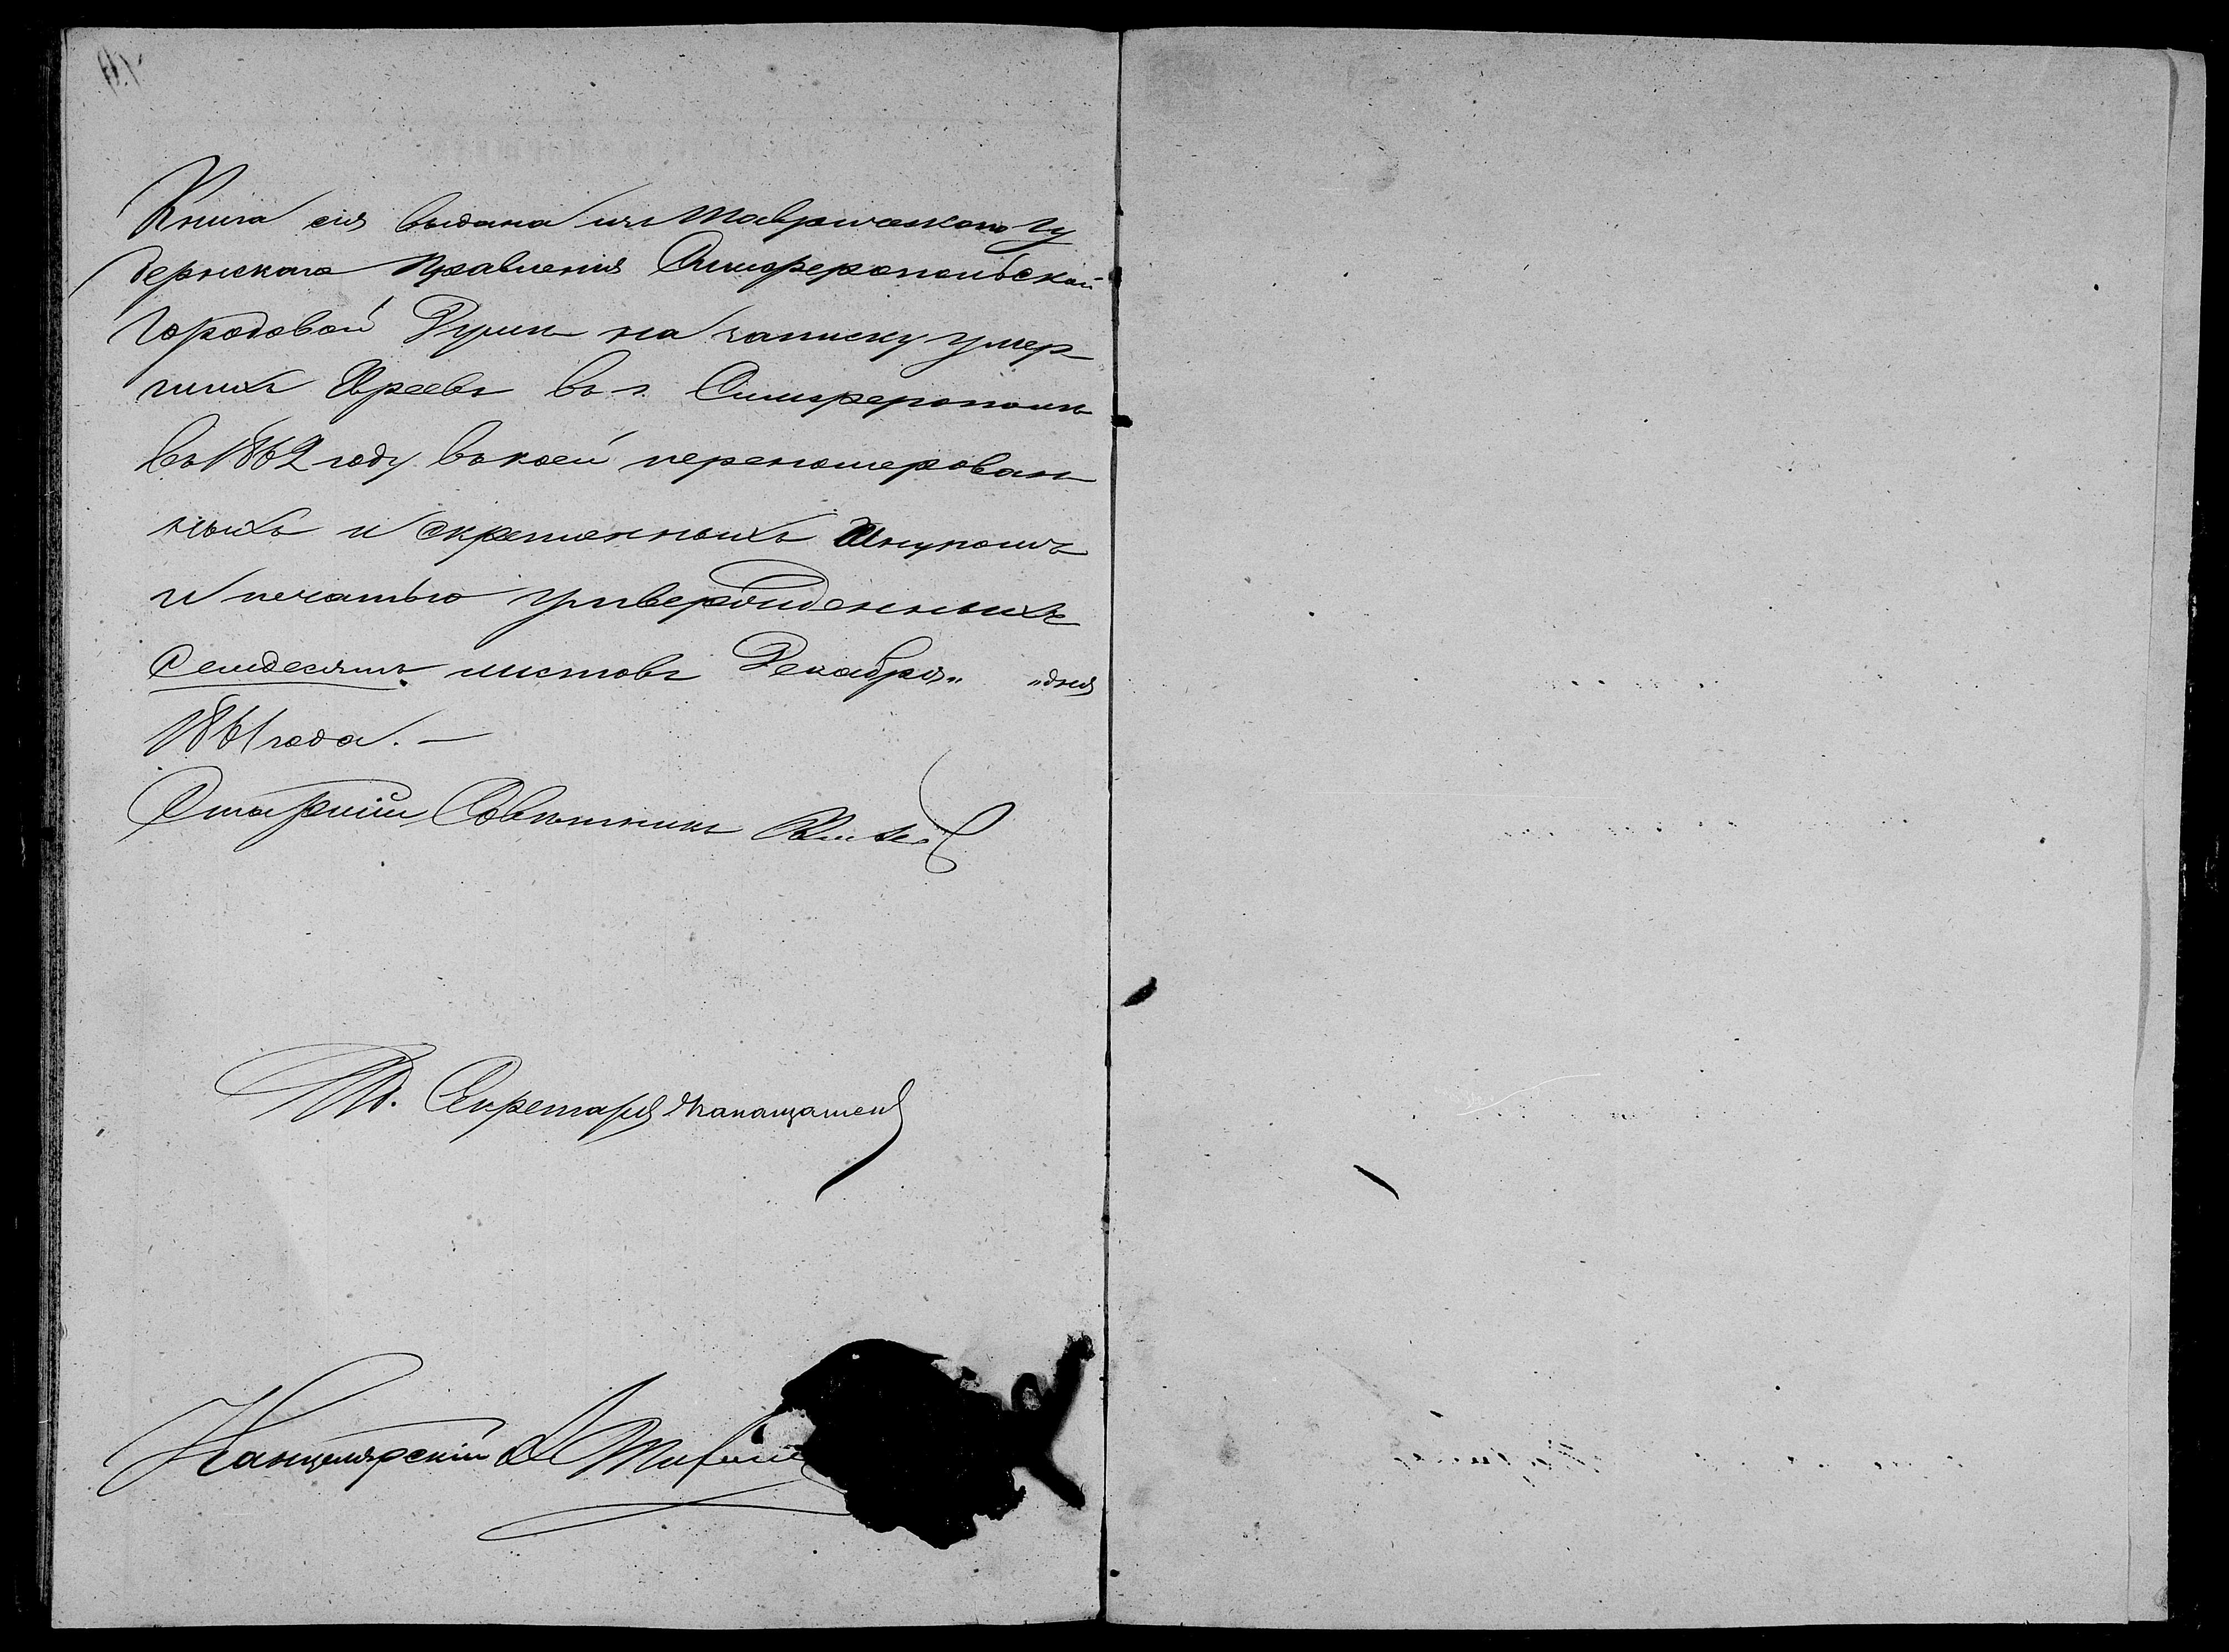 Книга сия выдана изъ Таврическаго Гу
бернскаго Правленія Симферопольской
Городовой Думѣ на записку умер
шихъ Евреевъ въ г. Симферополѣ
въ 1862 году въ коей переномерован
ныхъ и скрепленныхъ Шнуромъ
и печатью утвержденныхъ
Семдесятъ листовъ Декабря „ „ дня
1861 года. —
Старшій Совѣтникъ
Секретаря
Канцелярскій